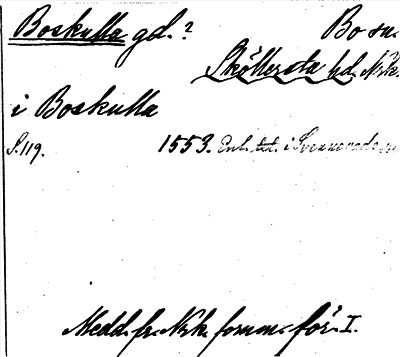 Boskulla gd.? Bo sn.
Sköllersta hd. Nrk.
i Boskulla
S. 119. 1553. Enl. tit. i Svennevads sn.
Medd. fr. Nrk. fornm. för. I.